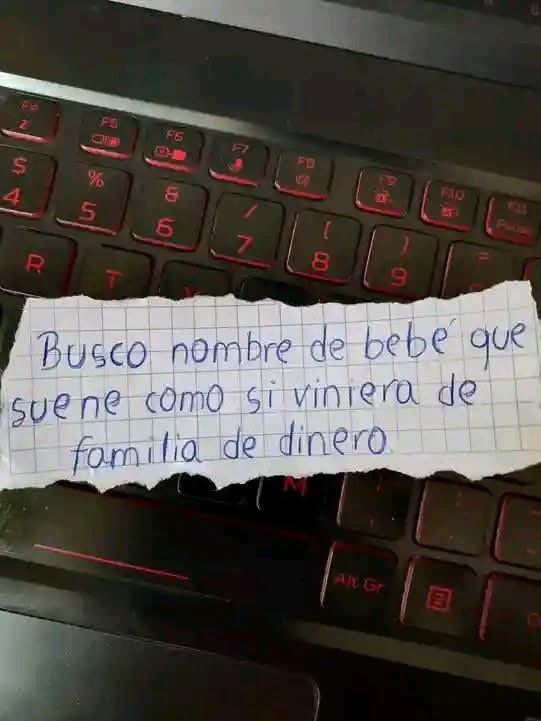 F4
F5
F6
F7
F8
F9
F10
F11
Pause
$
4
%
5
&
6
/
7
(
8
)
9
=
R
T
Busco nombre de bebé que
suene como si viniera de
familia de dinero
M
Alt Gr